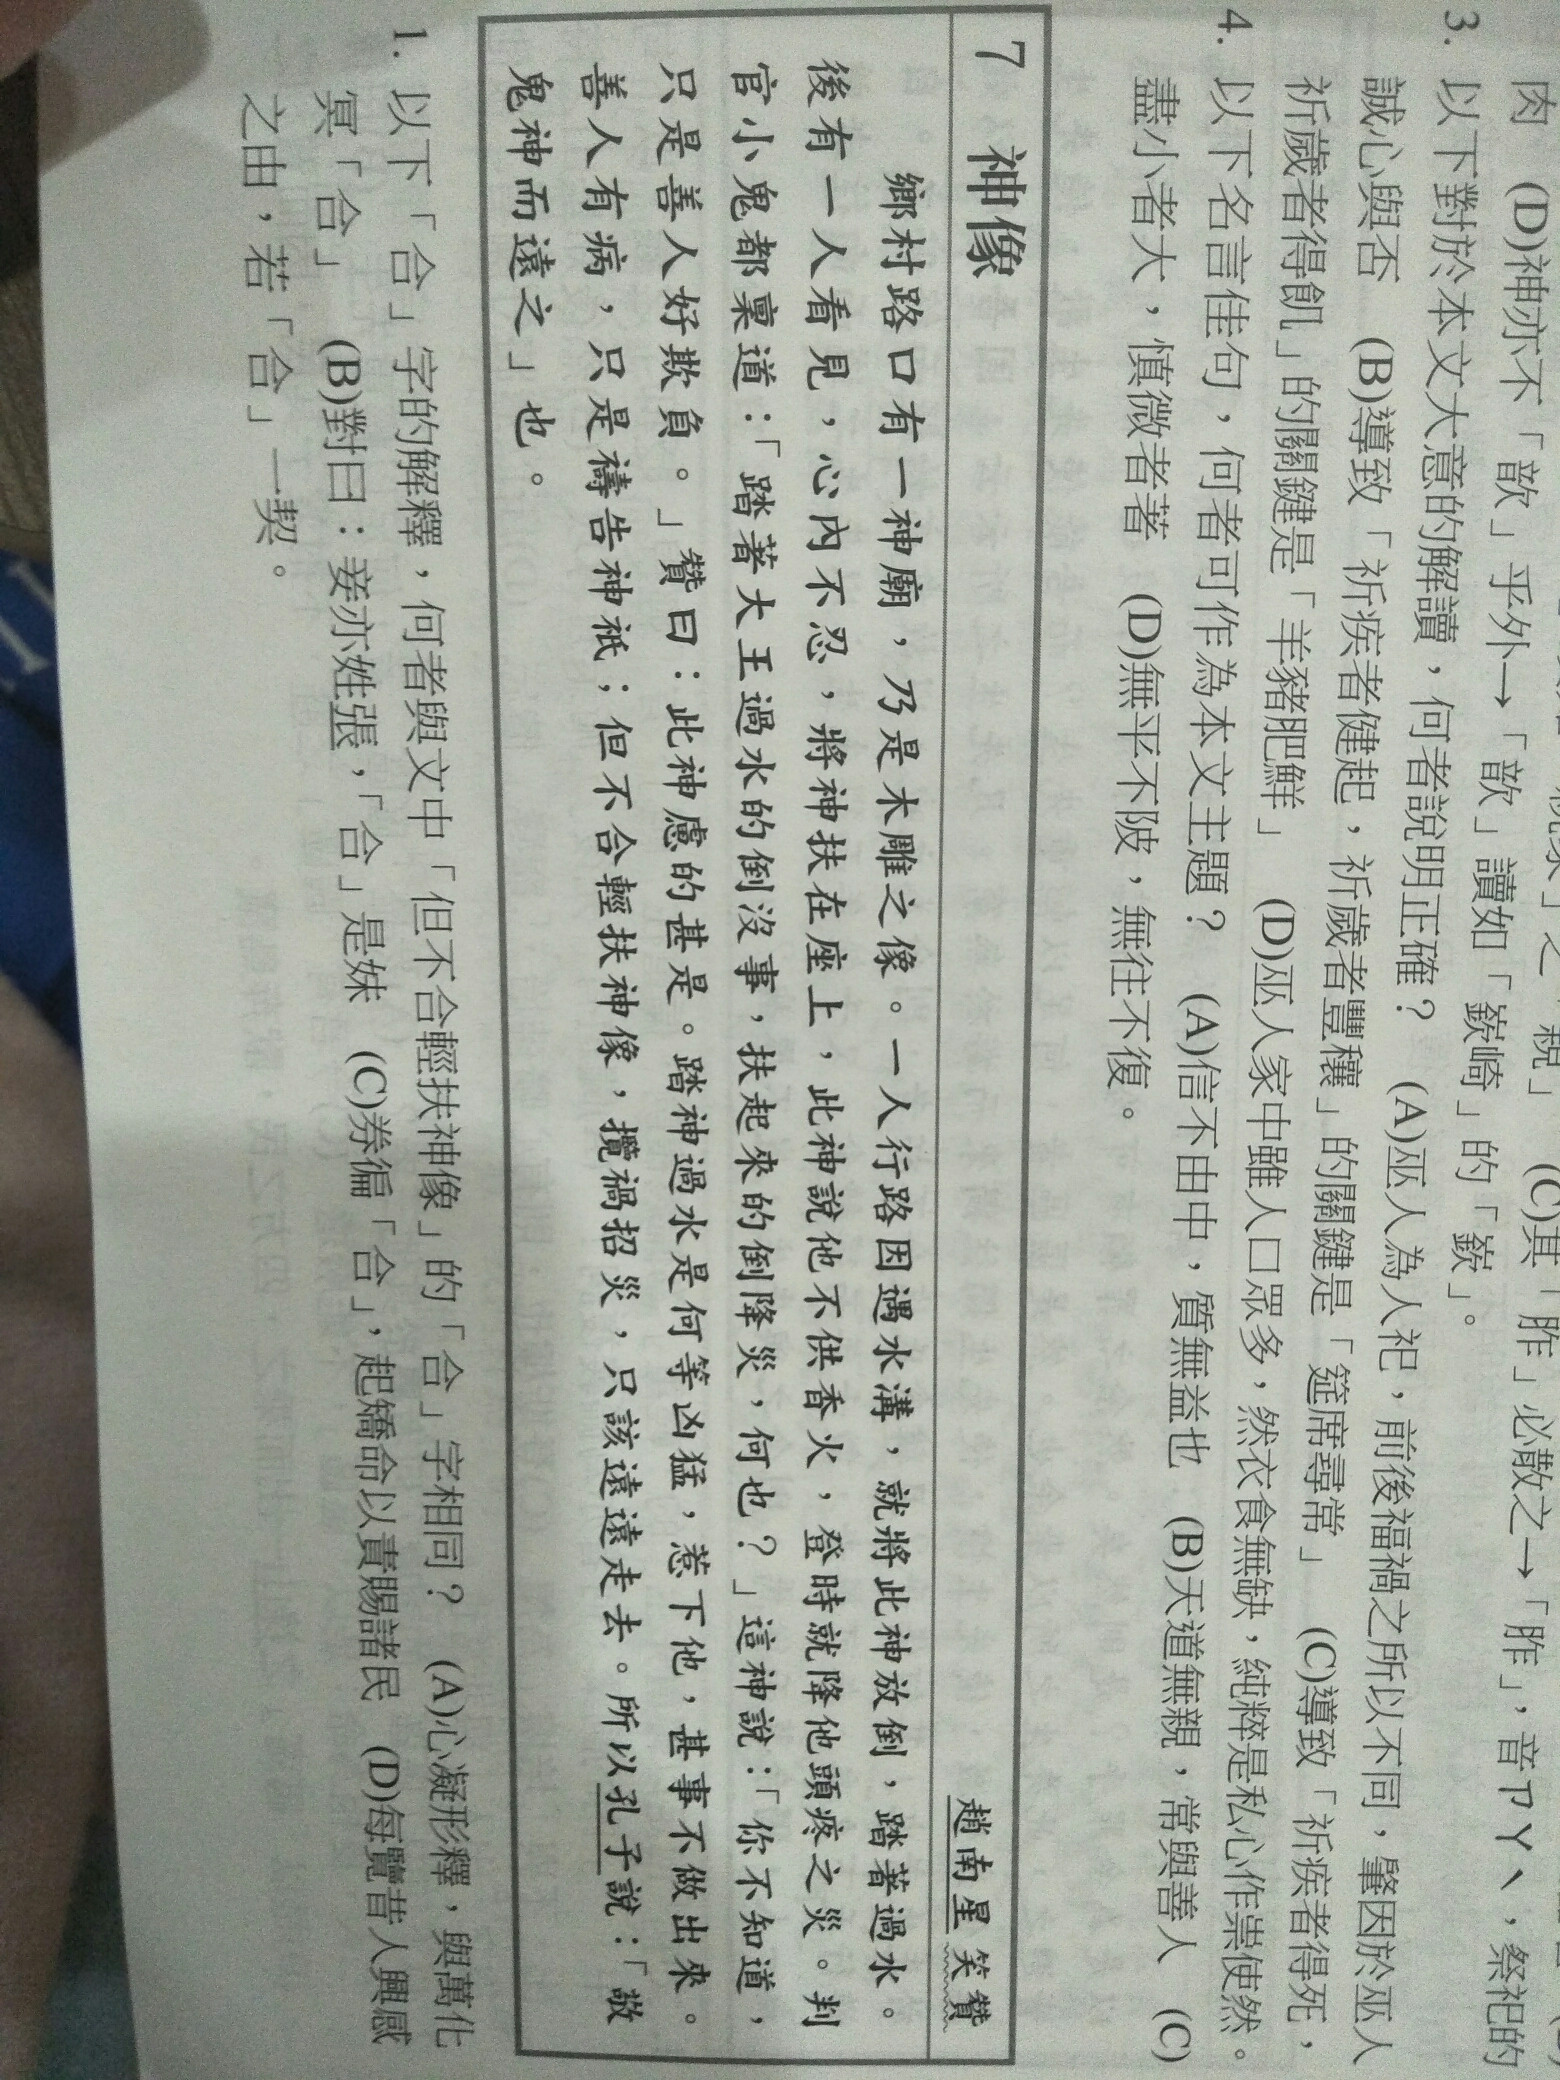 肉　(D)神亦不「歆」乎外→「歆」讀如「嶔崎」的「嶔」。
3. 以下對於本文大意的解讀，何者說明正確？　(A)巫人為人祀，前後福禍之所以不同，肇因於巫人
誠心與否　(B)導致「祈疾者健起，祈歲者豐穰」的關鍵是「筵席尋常」　(C)導致「祈疾者得死，
祈歲者得飢」的關鍵是「羊豬肥鮮」　(D)巫人家中雖人口眾多，然衣食無缺，純粹是私心作祟使然。
4. 以下名言佳句，何者可作為本文主題？　(A)信不由中，質無益也　(B)天道無親，常與善人　(C)
盡小者大，慎微者著　(D)無平不陂，無往不復。
7　神像
趙南星 笑贊
鄉村路口有一神廟，乃是木雕之像。一人行路因遇水溝，就將此神放倒，踏著過水。
後有一人看見，心內不忍，將神扶在座上，此神說他不供香火，登時就降他頭疼之災。判
官小鬼都稟道：「踏著大王過水的倒沒事，扶起來的倒降災，何也？」這神說：「你不知道，
只是善人好欺負。」贊曰：此神慮的甚是。踏神過水是何等凶猛，惹下他，甚事不做出來。
善人有病，只是禱告神祇；但不合輕扶神像，攬禍招災，只該遠遠走去。所以孔子說：「敬
鬼神而遠之」也。
1. 以下「合」字的解釋，何者與文中「但不合輕扶神像」的「合」字相同？　(A)心凝形釋，與萬化
冥「合」　(B)對曰：妾亦姓張，「合」是妹　(C)券徧「合」，起矯命以責賜諸民　(D)每覽昔人興感
之由，若「合」一契。